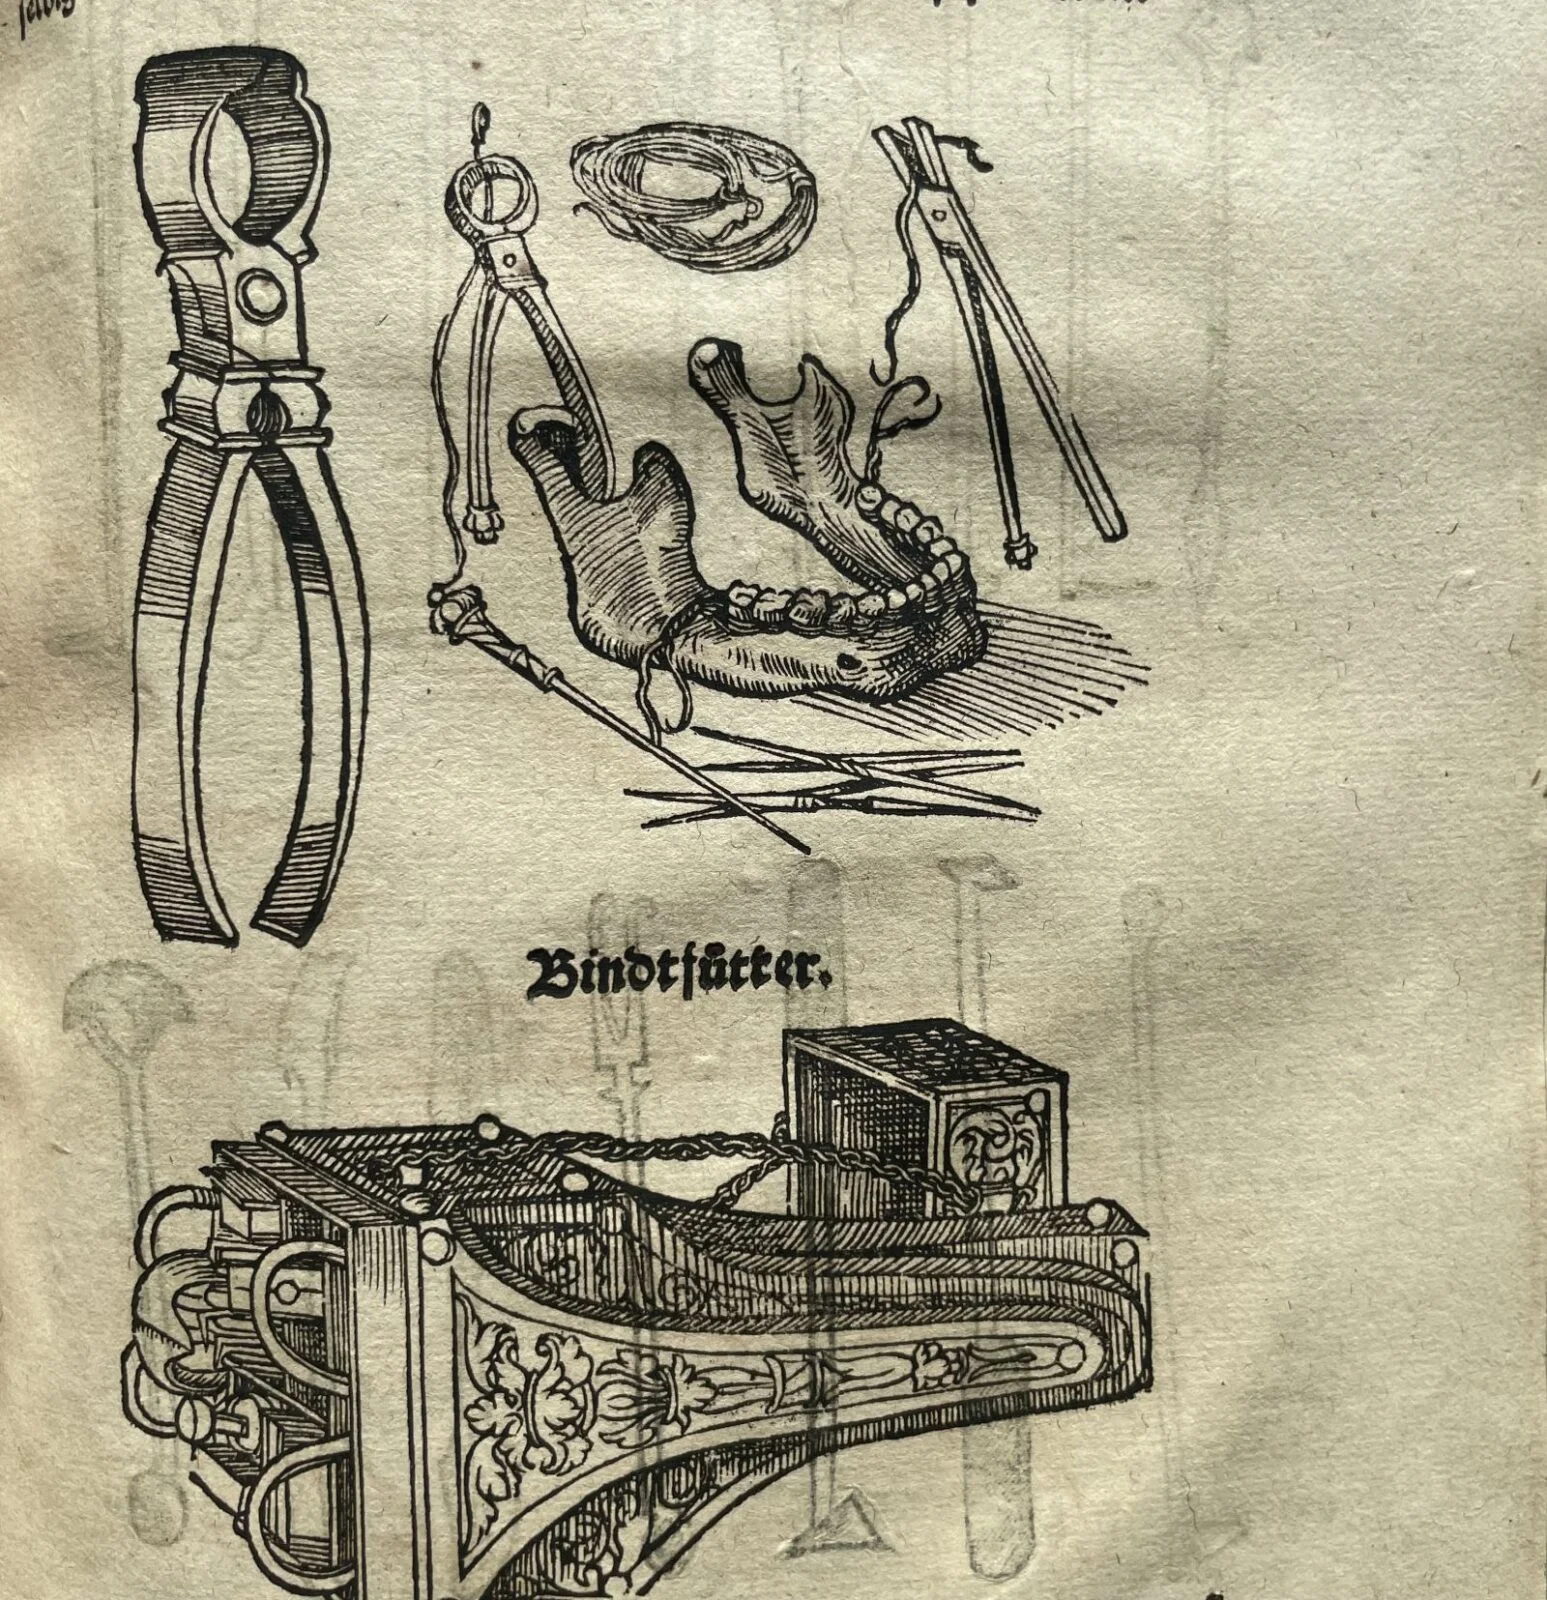 Bindtfůtter.